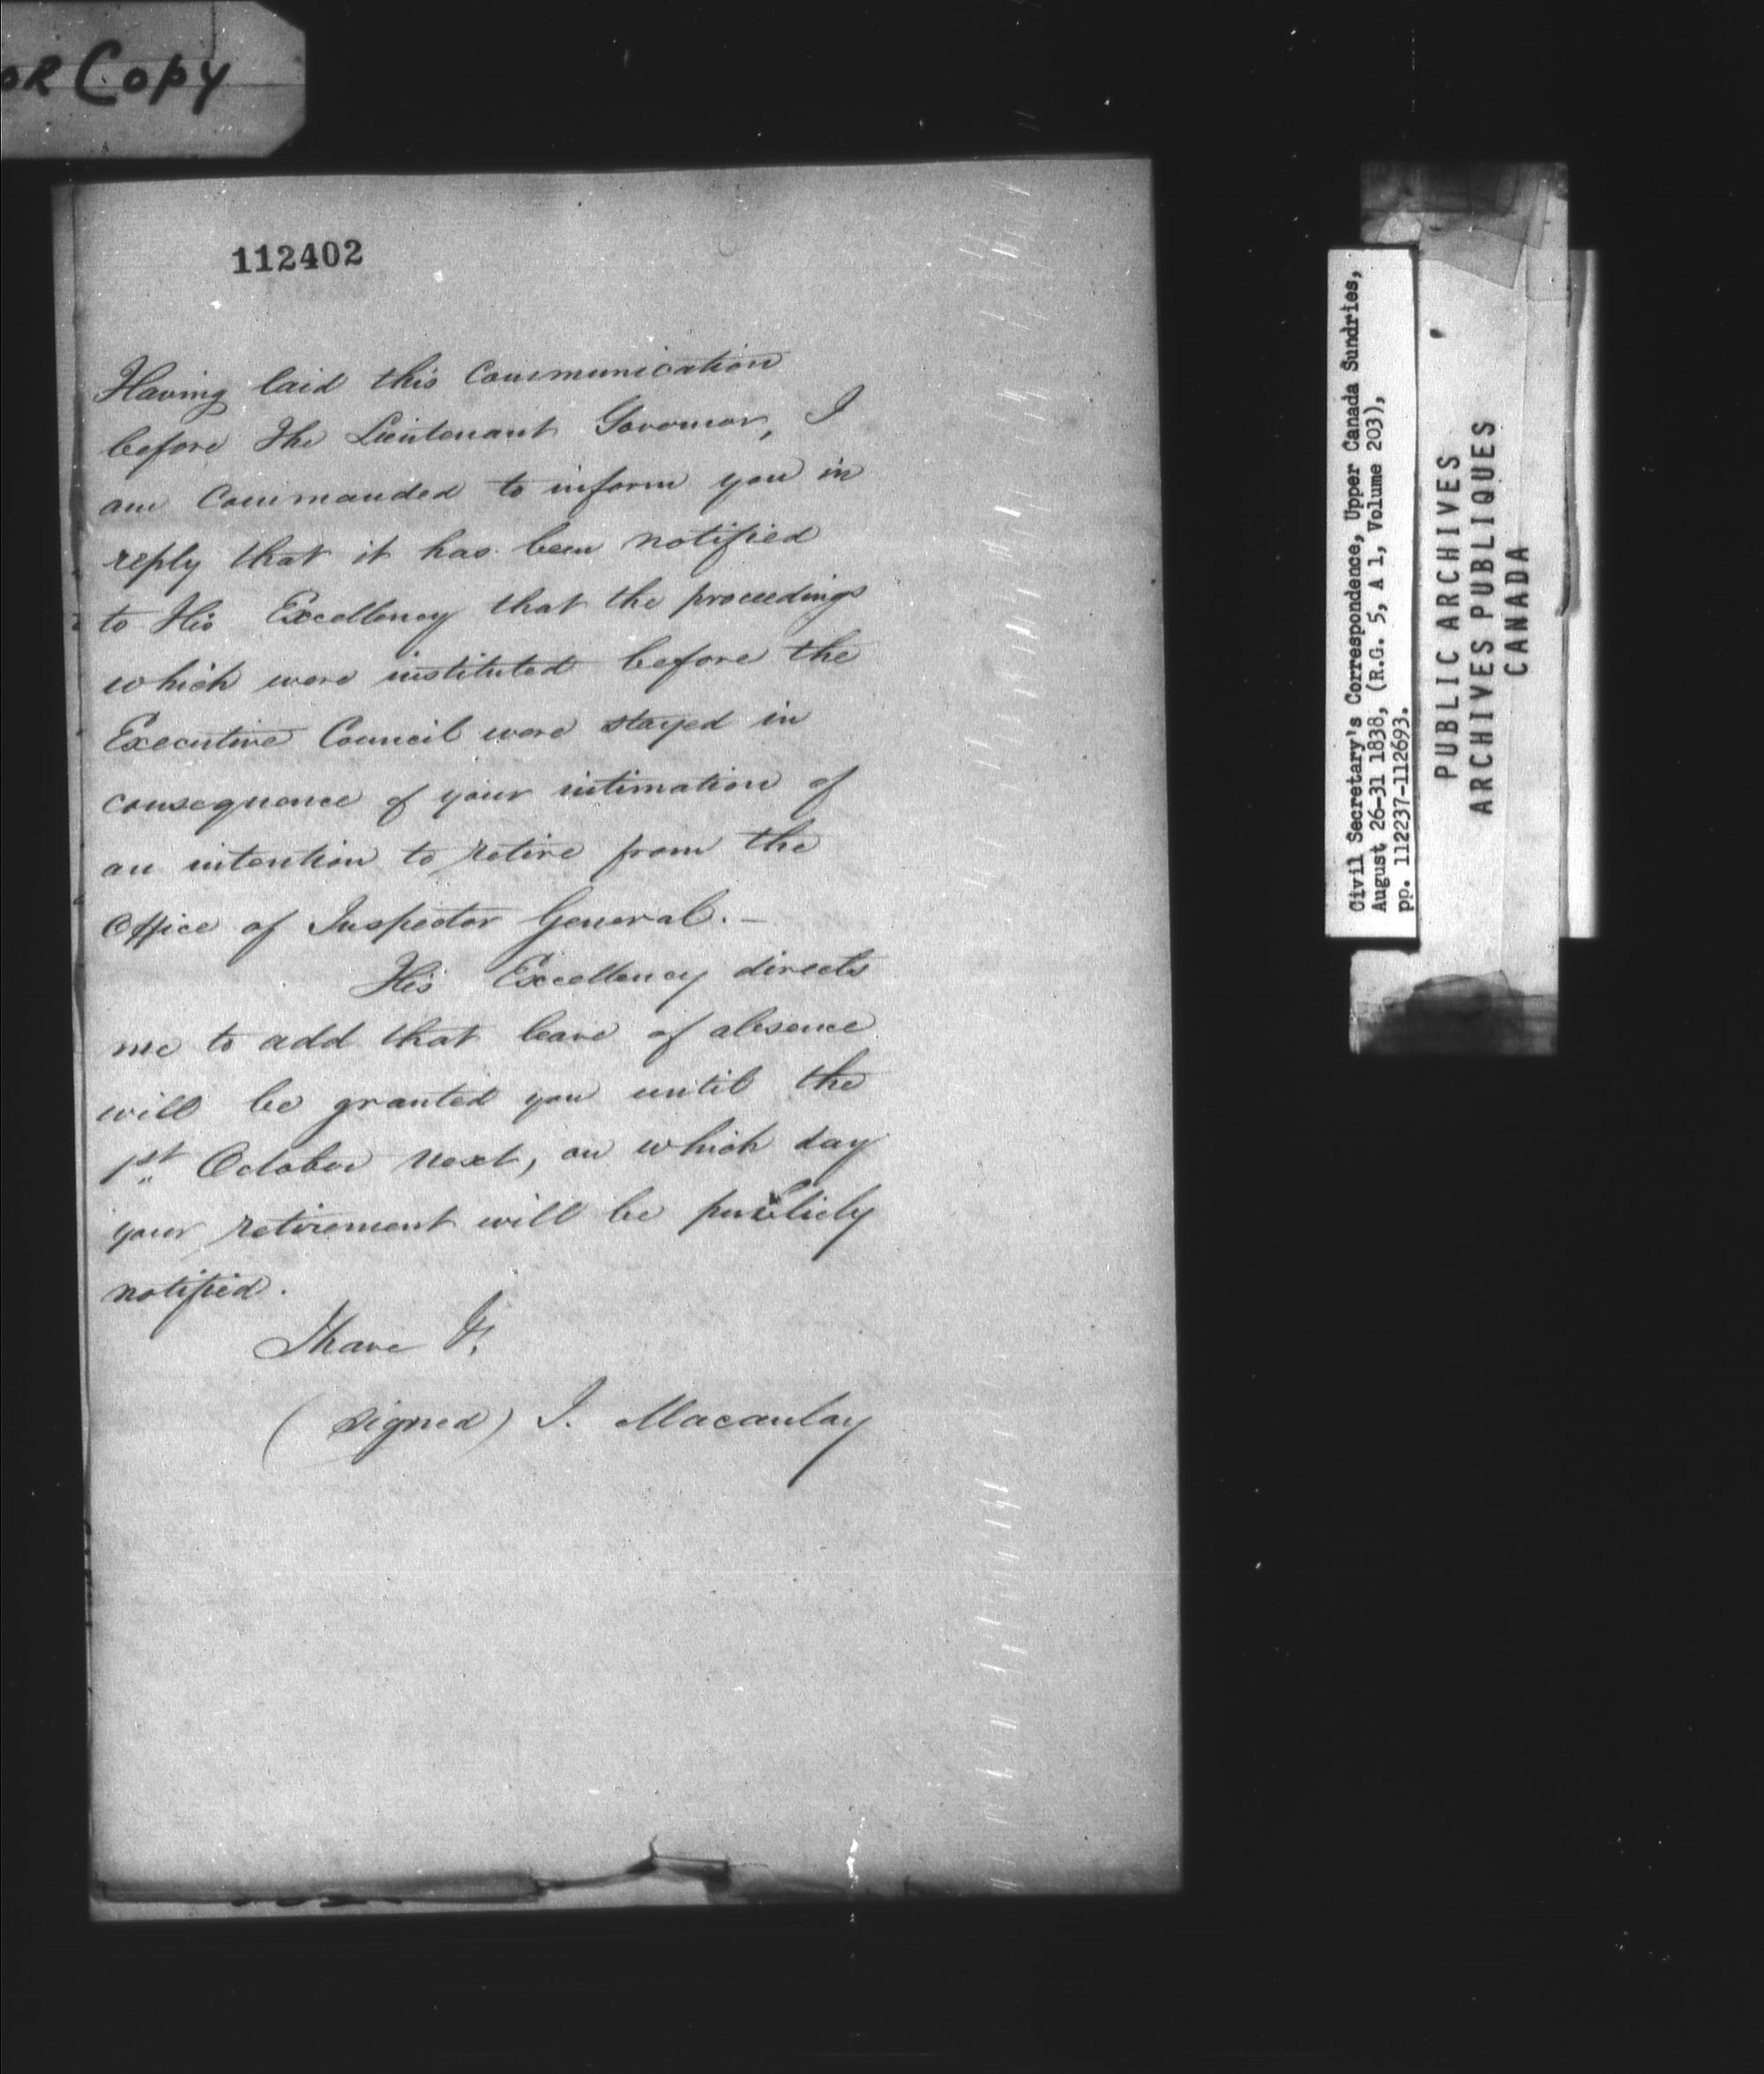 OR Copy
112402
Having laid this Communication
before The Lieutenant Governor, I
am Commanded to inform you in
reply that it has been notified
to His Excellency that the proceedings
which were instituted before the
Executive Council were stayed in
consequence of your intimation of
an intention to retire from the
Office of Inspector General. —
His Excellency directs
me to add that leave of absence
will be granted you until the
1st October next, on which day
your retirement will be publicly
notified.
I have &c
(signed) J. Macaulay
Civil Secretary's Correspondence, Upper Canada Sundries,
August 26-31 1838, (R.G. 5, A 1, Volume 203),
pp. 112237-112693.
PUBLIC ARCHIVES
ARCHIVES PUBLIQUES
CANADA